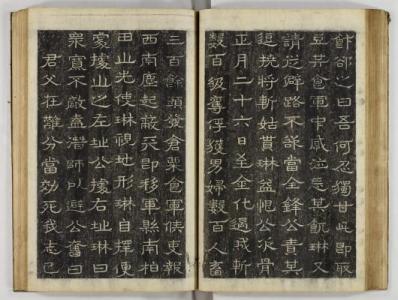 卻之曰吾何忍獨甘此即
豆并食軍中感泣忘其飢琳又
請從僻路不欲當全鋒公責其
逗撓將斬姑貰琳益恨公次骨
正月二十六日至金化遇賊斬
數百級奪俘獲男婦數百人畜
三百餘頭發倉粟食軍候吏報
西南塵起蔽天即移軍縣南柏
田山先使琳視地形琳自擇便
處據山之左址公據右址琳曰
眾寡不敵盍潛師以避公奮曰
君父在難分當效死我志已